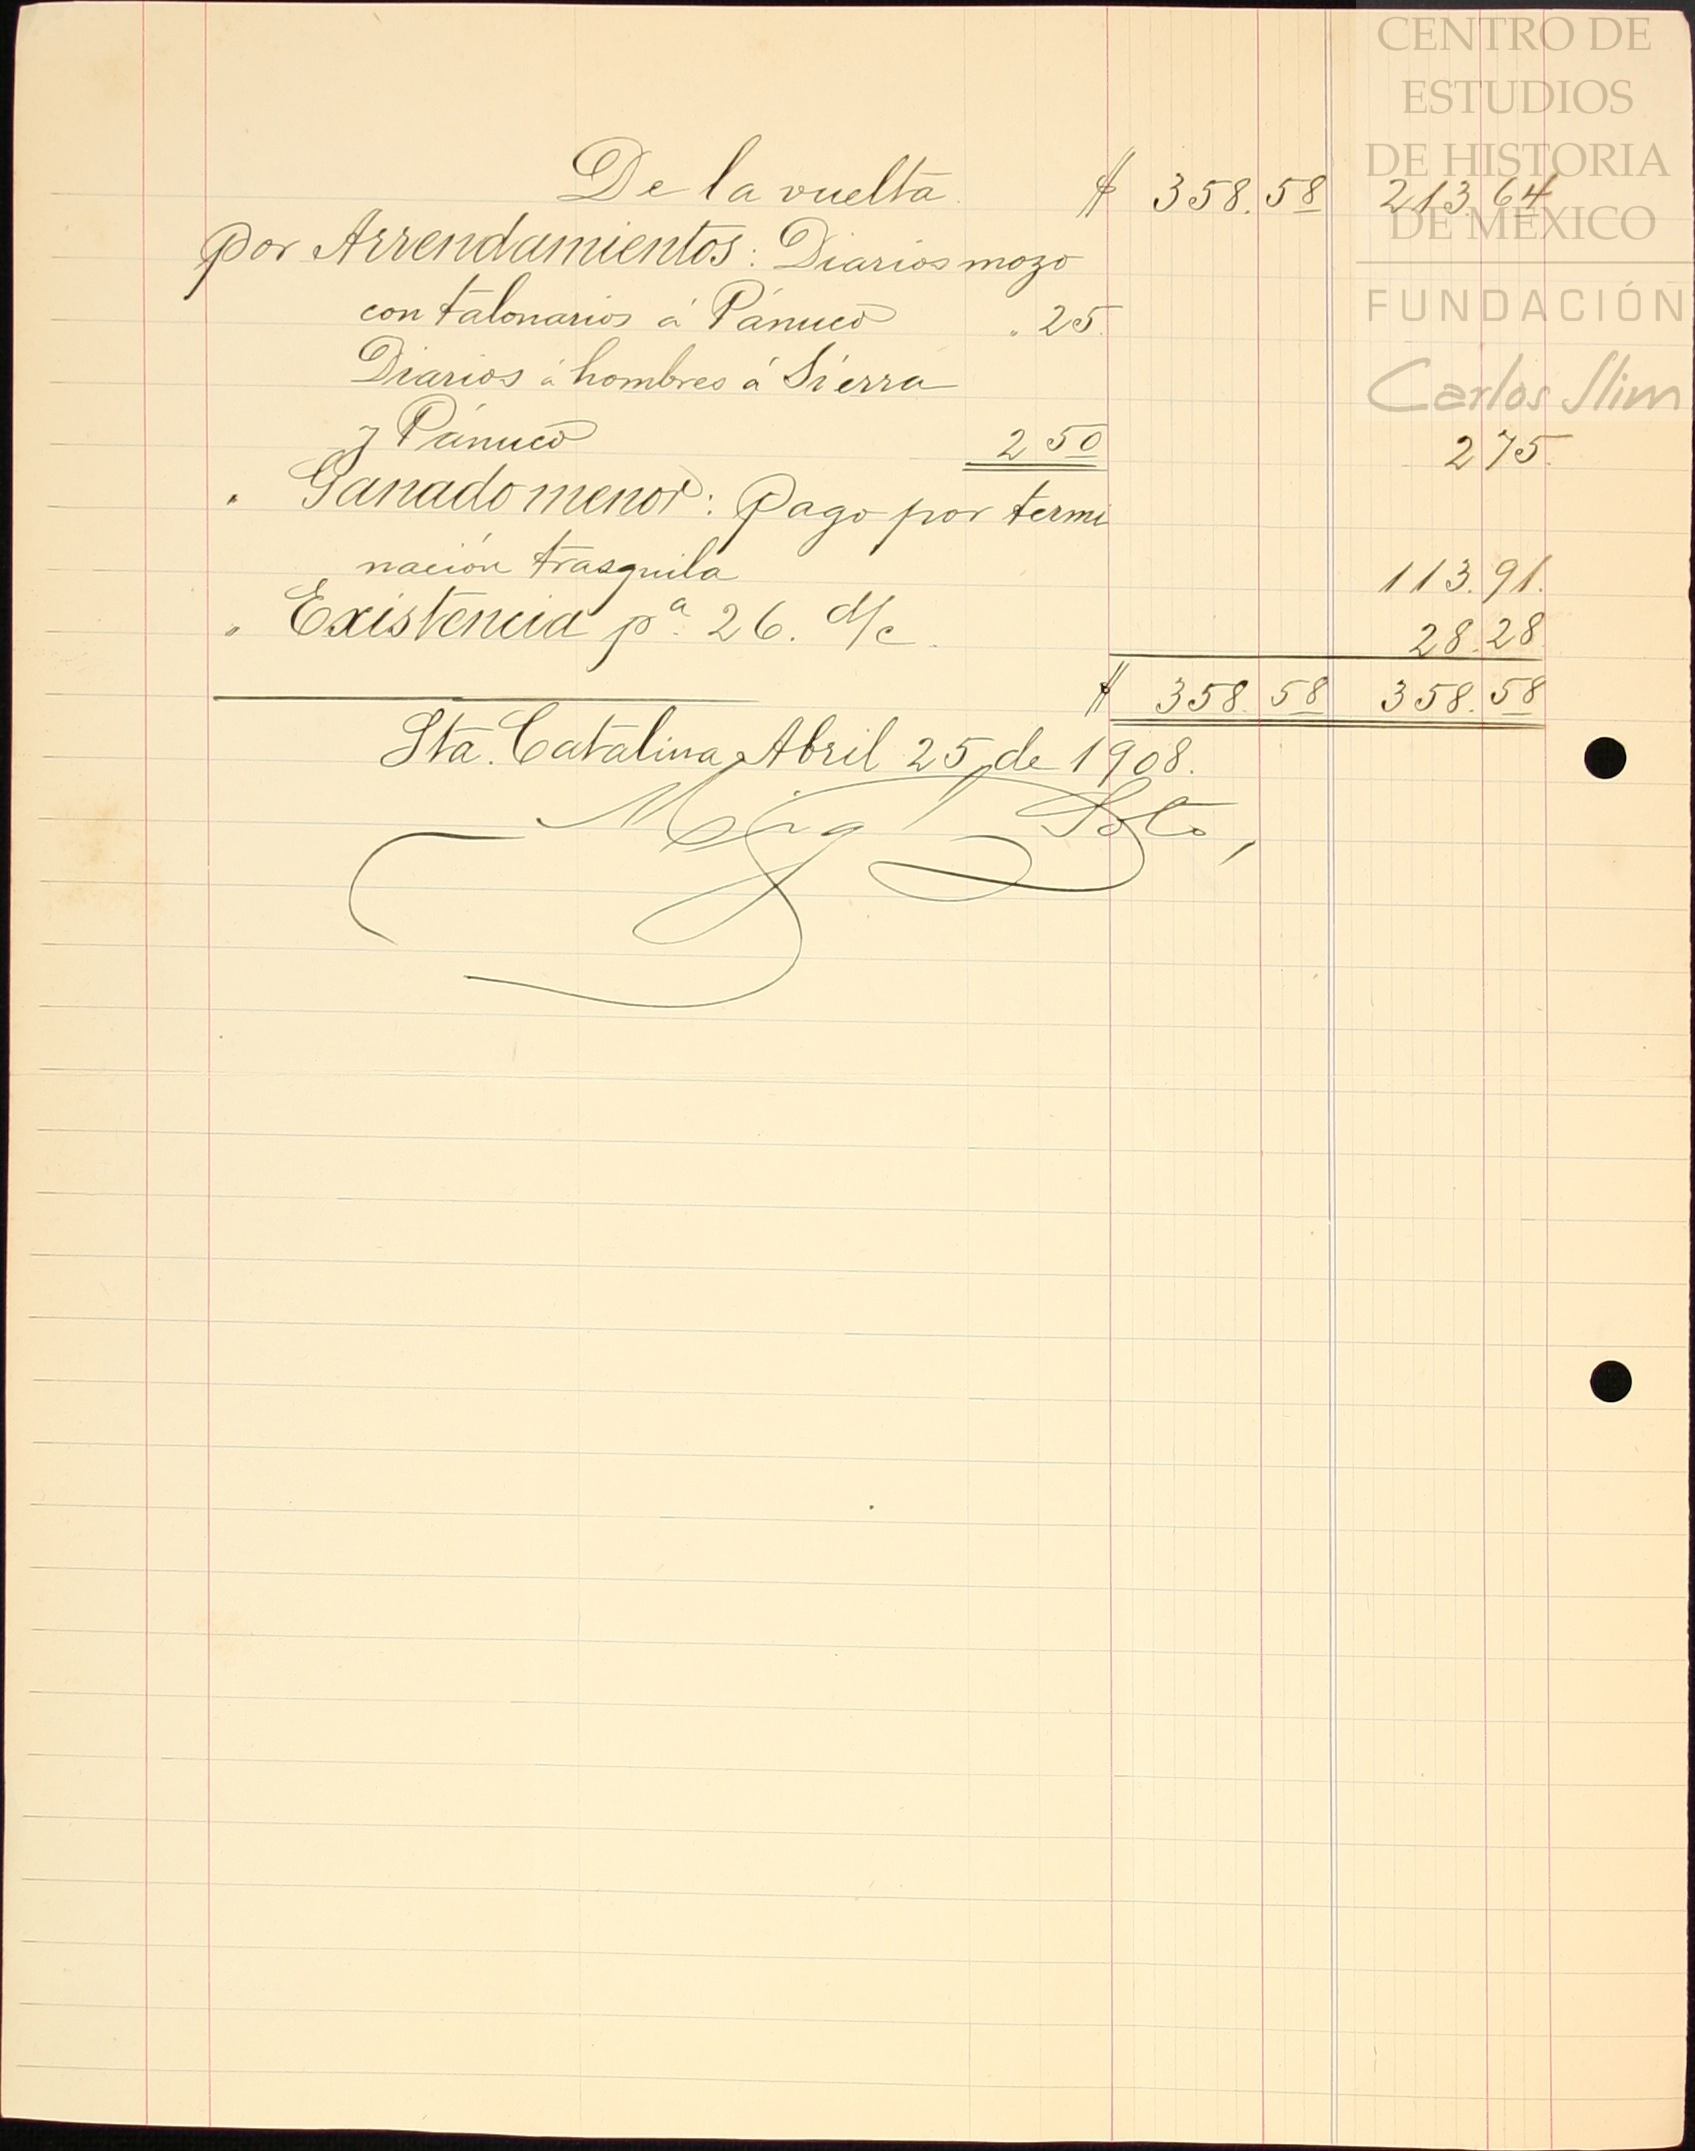 CENTRO DE
ESTUDIOS
DE HISTORIA
DE MÉXICO
FUNDACIÓN
Carlos Slim
De la vuelta. $ 358.58 213.64
Por Arrendamientos: Diarios mozo
con talonarios á Pánuco " 25.
Diarios á hombres á Sierra
y Pánuco 2 50 2 75.
" Ganado menor: Pago por termi
nación trasquila 113.91.
" Existencia pª 26. d/c. 28.28
$ 358.58 358.58
Sta. Catalina, Abril 25 de 1908.
Soto,